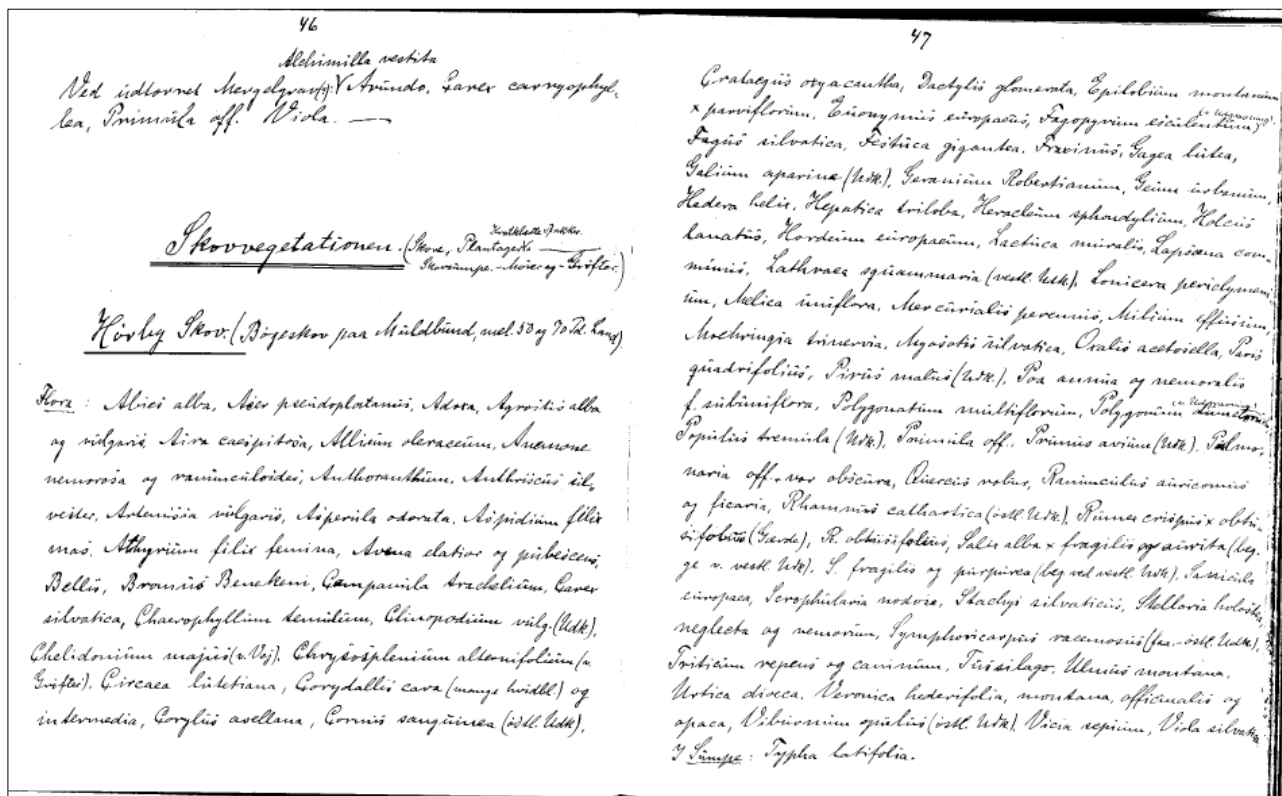 46
Alchimilla vestita
Ved udtørret Mergelgrav(e): Arundo. Carex caryophyl-
lea, Primula off. Viola. —
Skovvegetationen. (Skove, Plantager. Kratklædte Bakker.
Skovsumpe. - Moser og Grøfter.)
Hørby Skov. (Bøgeskov paa Muldbund, mel. 50 og 70 Td. Land)
Flora: Abies alba, Acer pseudoplatanus, Adoxa, Agrostis alba
og vulgaris, Aira caespitosa, Allium oleraceum, Anemone
nemorosa og ranunculoides, Anthoxanthum, Anthriscus sil-
vester, Artemisia vulgaris, Asperula odorata, Aspidium filix
mas, Athyrium filix femina, Avena elatior og pubescens,
Bellis, Bromus Benekeni, Campanula trachelium, Carex
silvatica, Chaerophyllum temulum, Clinopodium vulg. (Udk),
Chelidonium majus (v. Vej). Chrysosplenium alternifolium (v.
Grøfter), Circaea lutetiana, Corydallis cava (mange hvidbl.) og
intermedia, Corylus avellana, Cornus sanguinea (østl. Udk),
47
Crataegus oxyacantha, Dactylis glomerata, Epilobium montanum
x parviflorum, Euonymus europaeus, Fagopyrum esculentum,
Fagus silvatica, Festuca gigantea, Fraxinus, Gagea lutea,
Galium aparine (Udk.), Geranium Robertianum, Geum urbanum,
Hedera helix, Hepatica triloba, Heracleum sphondylium, Holcus
lanatus, Hordeum europaeum, Lactuca muralis, Lapsana com-
munis, Lathraea squammaria (vestl. Udk.), Lonicera periclymen-
um, Melica uniflora, Mercurialis perennis, Milium effusum,
Moehringia trinervia, Myosotis silvatica, Oxalis acetosella, Paris
quadrifolius, Pirus malus (Udk.), Poa annua og nemoralis
f. subuniflora, Polygonatum multiflorum, Polygonum
Populus tremula (Udk.), Primula off. Prunus avium (Udk). Pulmo-
naria off. var obscura, Quercus robur, Ranunculus auricomus
og ficaria, Rhamnus cathartica (østl. Udk.), Rumex crispus x obtu-
sifolius (Gærde), R. obtusifolius, Salix alba x fragilis og aurita (beg-
ge v. vestl. Udk), S. fragilis og purpurea (beg ved vestl. Udk), Sanicula
europaea, Scrophularia nodosa, Stachys silvaticus, Stellaria holostea,
neglecta og nemorum, Symphoricarpus racemosus (østl. Udk.),
Triticum repens og caninum, Tussilago. Ulmus montana.
Urtica dioeca. Veronica hederifolia, montana, officinalis og
opaca, Viburnum opulus (østl. Udk). Vicia sepium, Viola silvatica
I Sumpe: Typha latifolia.